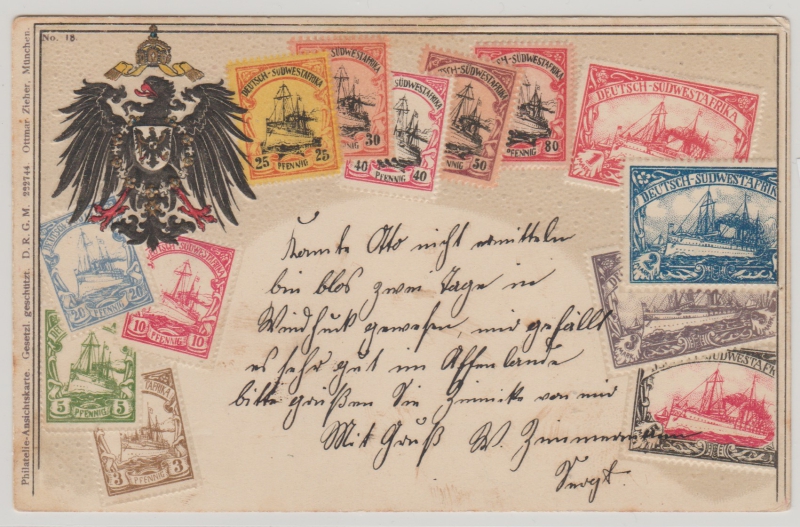 No. 18.
Philatelie-Ansichtskarte. Gesetzl. geschützt. D. R. G. M. 222744. Ottmar Zieher, München.
DEUTSCH-SÜDWESTAFRIKA
25 PFENNIG 25
SÜDWESTAFRIKA
30
SÜDWESTAFRIKA
40 PFENNIG 40
DEUTSCH-SÜDWESTAFRIKA
NNIG 50
DEUTSCH-SÜDWESTAFRIKA
PFENNIG 80
DEUTSCH-SÜDWESTAFRIKA
DEUTSCH-SÜDWESTAFRIK
DEU
SÜDWESTAFRIK
20 PFENNIG 20
SÜDWESTAFRIKA
10 PFENNIG 10
5 PFENNIG 5
AFRIKA
3 PFENNIG 3
Konnte Otto nicht ermitteln
bin blos zwei Tage in
Windhuk gewesen, mir gefällt
es sehr gut im Affenlande
bitte grüßen Sie von mir
Mit Gruß W.